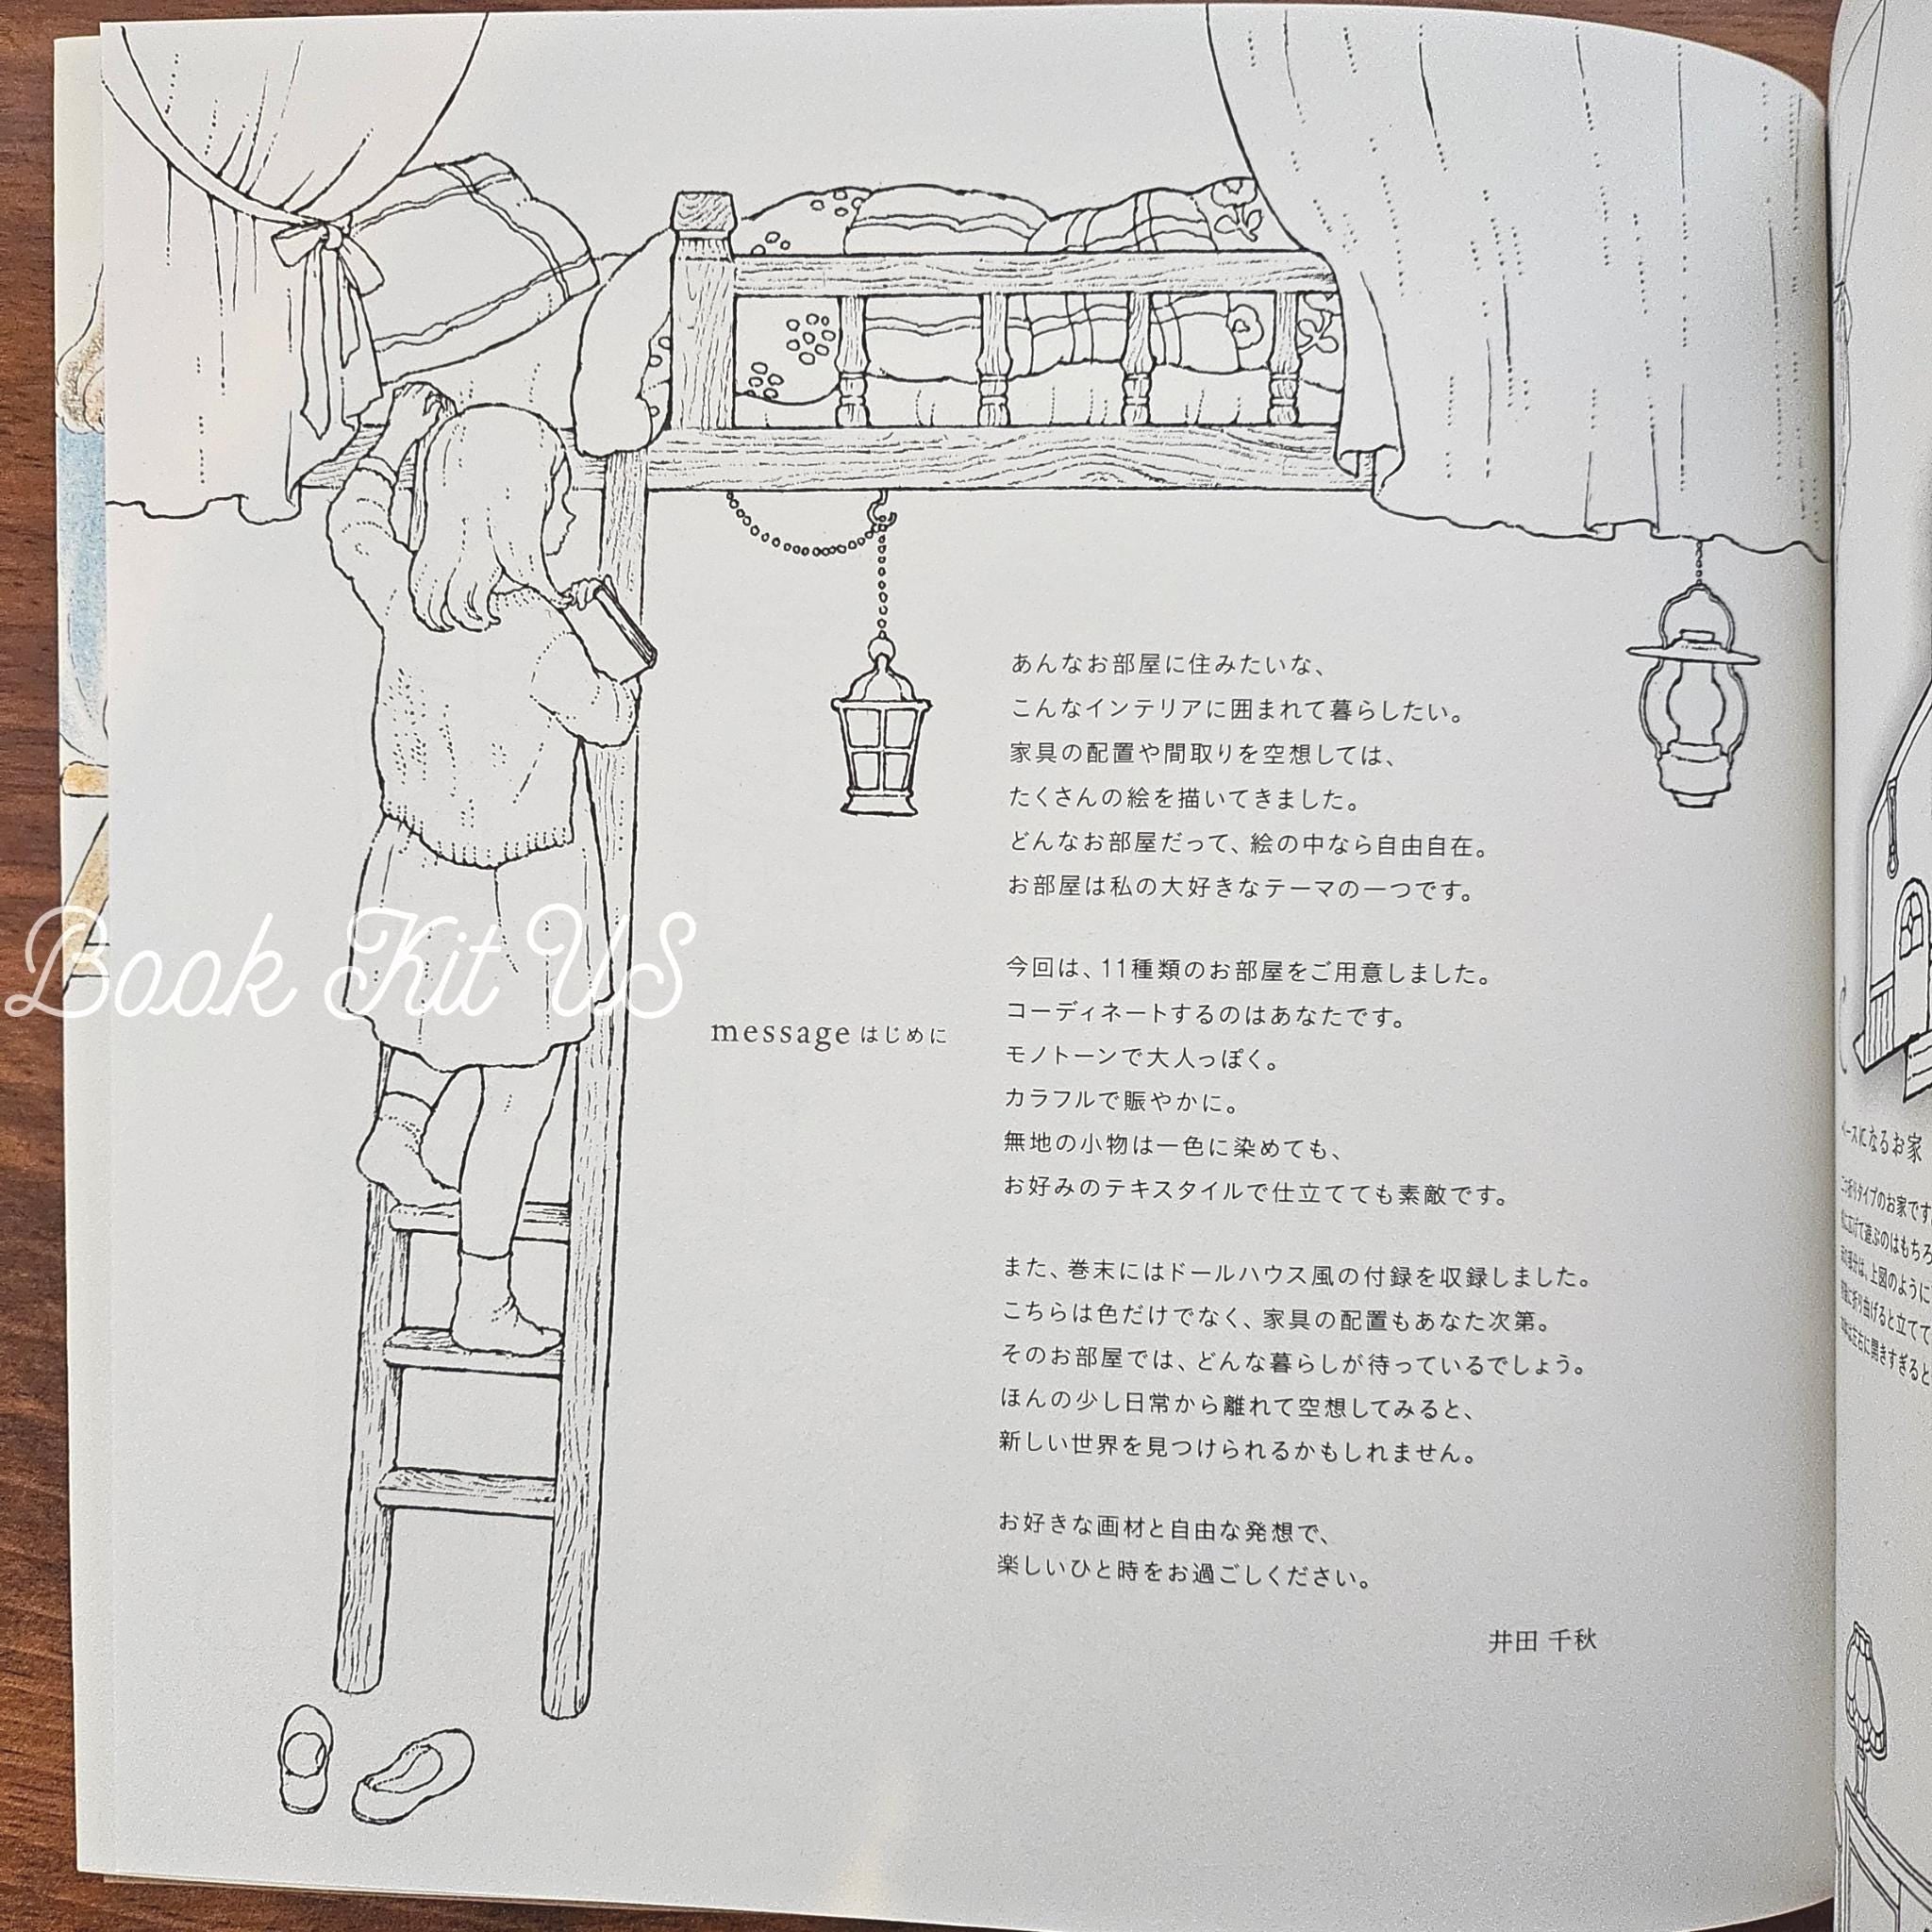 Book Kit US
message はじめに
あんなお部屋に住みたいな、
こんなインテリアに囲まれて暮らしたい。
家具の配置や間取りを空想しては、
たくさんの絵を描いてきました。
どんなお部屋だって、絵の中なら自由自在。
お部屋は私の大好きなテーマの一つです。
今回は、11種類のお部屋をご用意しました。
コーディネートするのはあなたです。
モノトーンで大人っぽく。
カラフルで賑やかに。
無地の小物は一色に染めても、
お好みのテキスタイルで仕立てても素敵です。
また、巻末にはドールハウス風の付録を収録しました。
こちらは色だけでなく、家具の配置もあなた次第。
そのお部屋では、どんな暮らしが待っているでしょう。
ほんの少し日常から離れて空想してみると、
新しい世界を見つけられるかもしれません。
お好きな画材と自由な発想で、
楽しいひと時をお過ごしください。
井田 千秋
ベースになるお家
タイプのお家です
広げて遊ぶのはもちろ
上図のように
に折り曲げると立てて
左右に開きすぎると